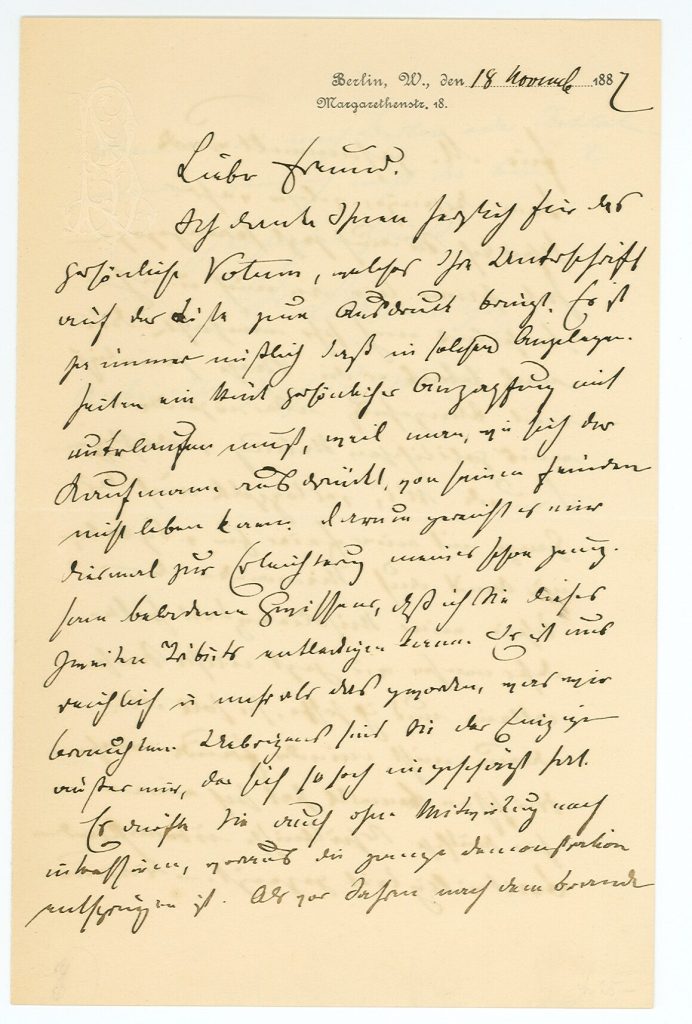 Berlin, W., den 18 Novemb 1887
Margarethenstr. 18.
Lieber Freund.
Ich danke Ihnen herzlich für das
persönliche Votum, welches Ihre Unterschrift
auf der Liste zum Ausdruck bringt. Es ist
ja immer mißlich daß in solchen Angelegen-
heiten ein Stück persönlicher Anzapfung mit
unterlaufen muß, weil man, wie sich der
Kaufmann ausdrückt, von seinen Feinden
nicht leben kann. Darum gereicht es mir
diesmal zur Erleichterung meines schon genug-
sam beladenen Gewissens, daß ich Sie dieses
zweiten Tributs entledigen kann. Es ist uns
reichlich u mehr als das geworden, was wir
brauchten. Uebrigens sind Sie der Einzige
außer mir, der sich so hoch eingeschätzt hat.
Es dürfte Sie auch ohne Mitwirkung noch
interessiren, woraus die ganze Demonstration
entsprungen ist. Als vor Jahren nach dem Brande